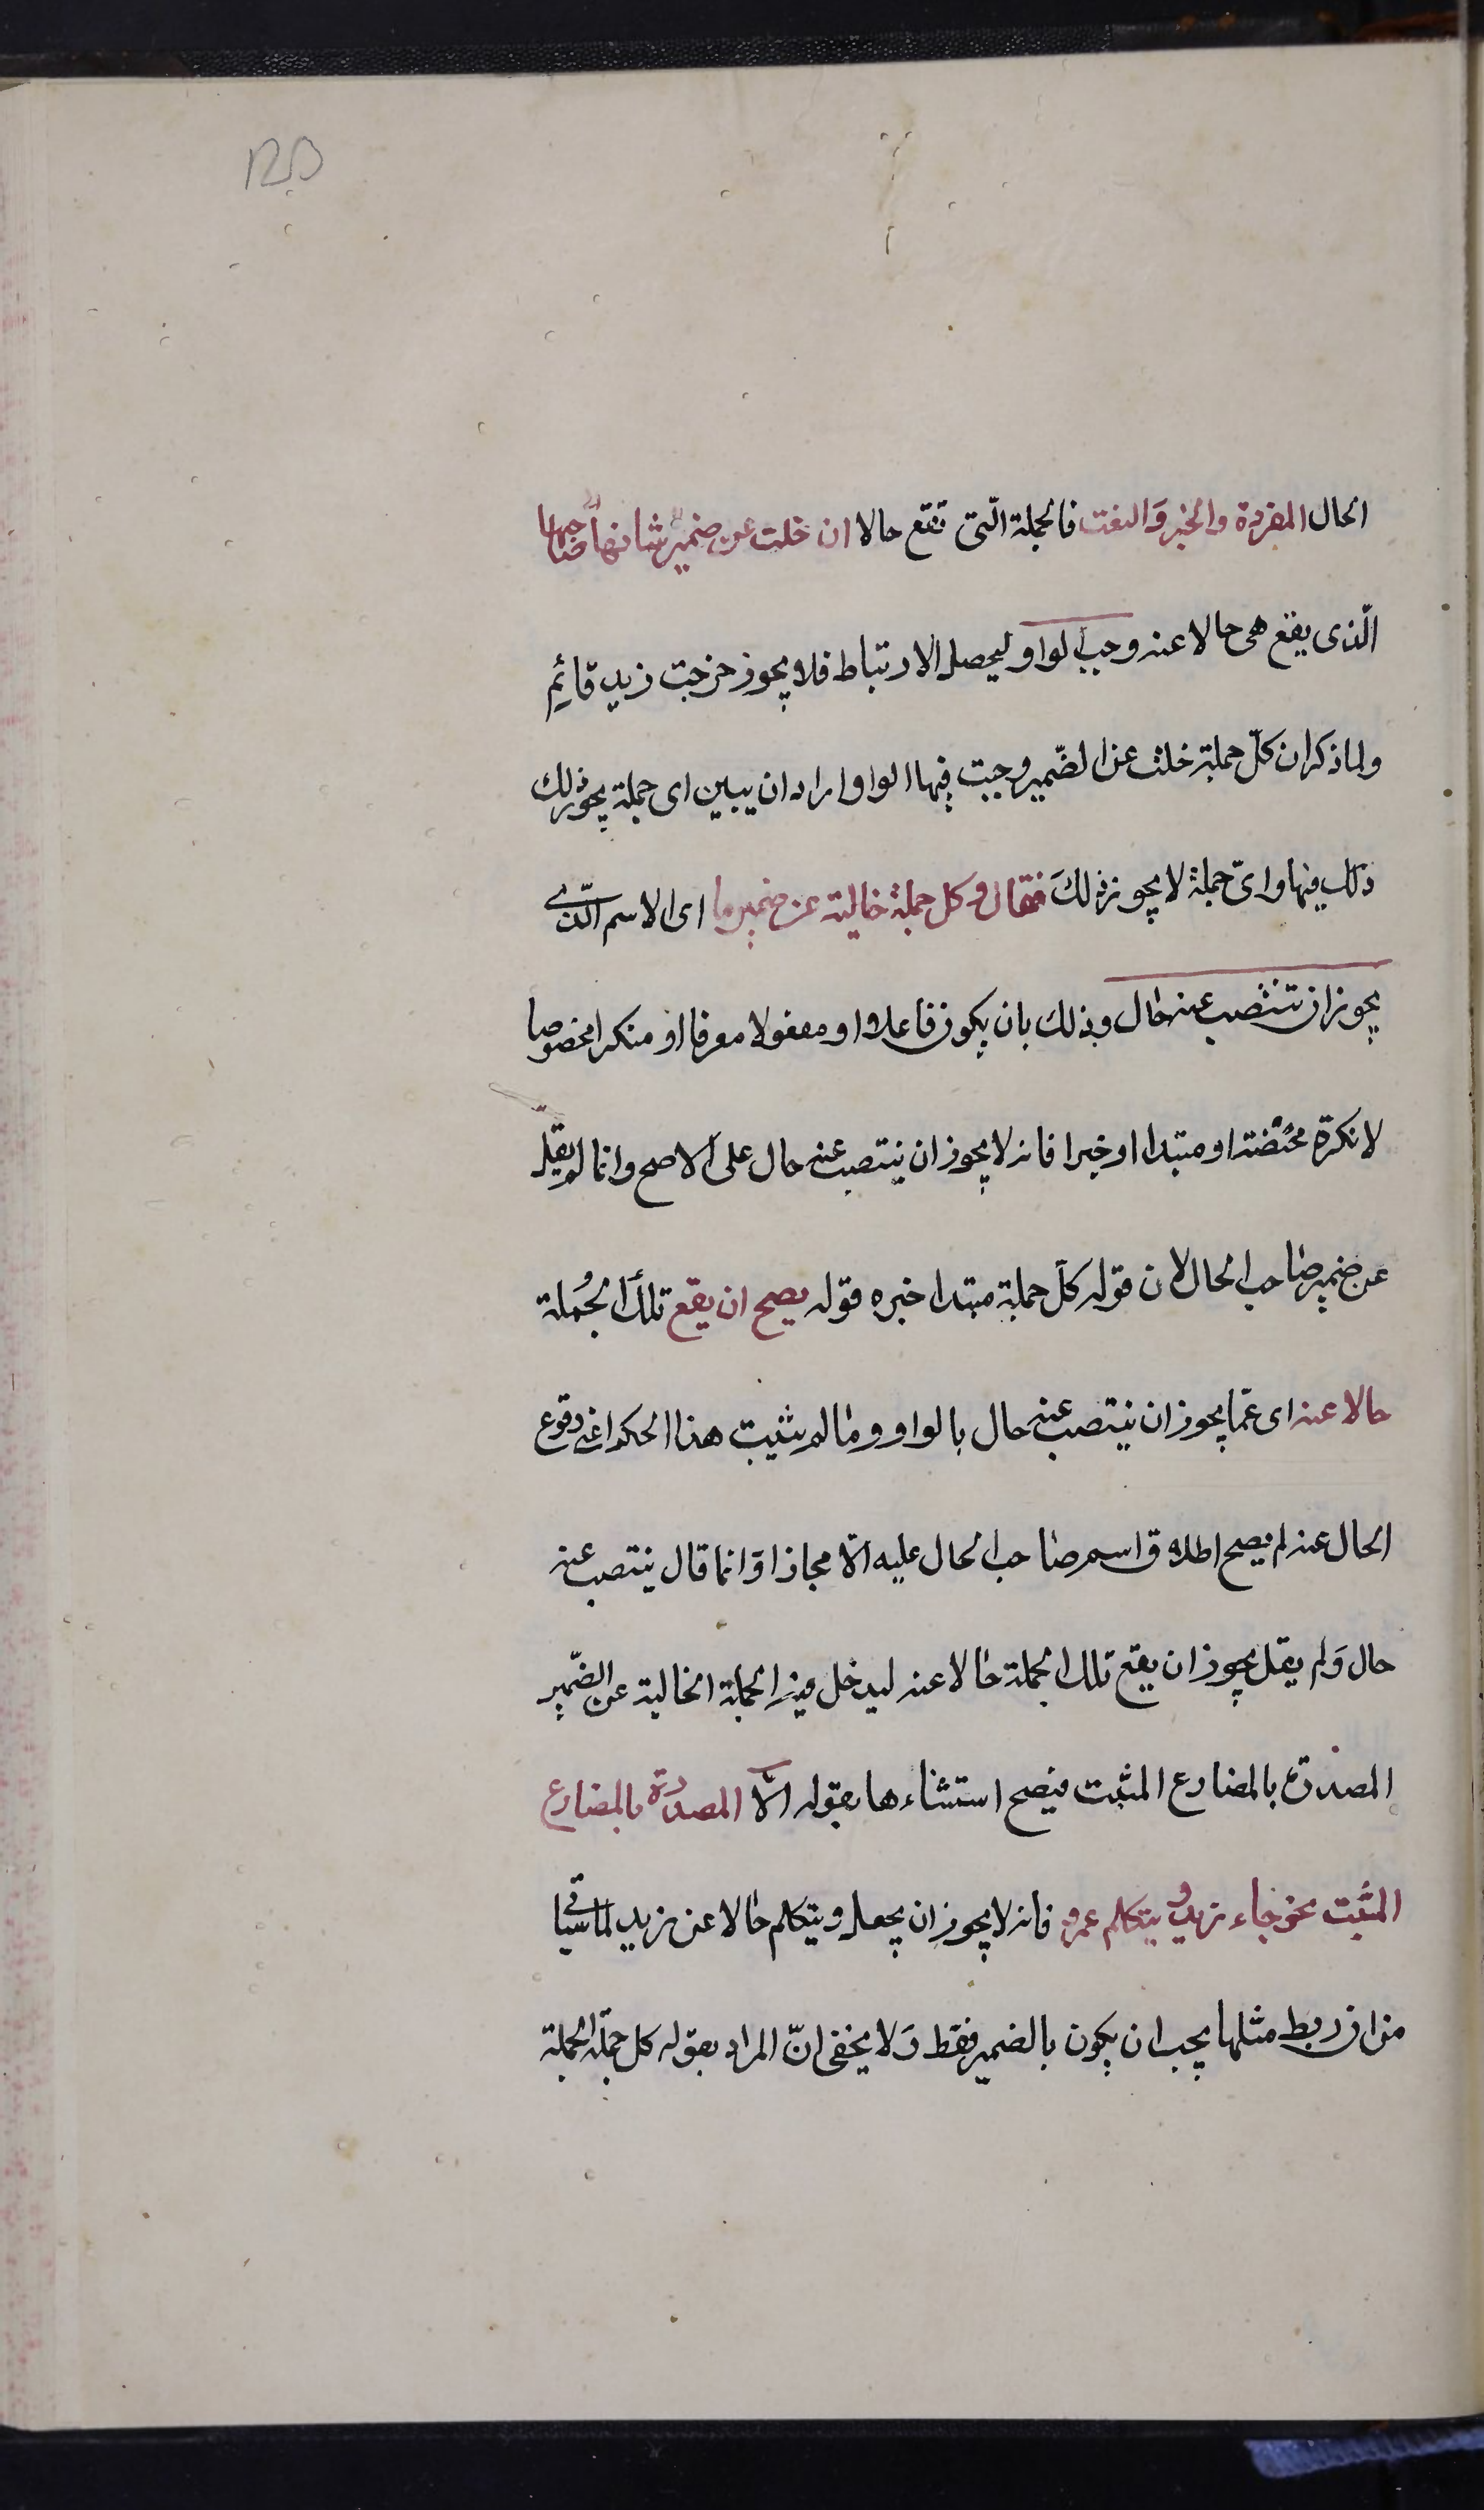 الحال المفردة والخبر وَالنعت فالجملة الّتى تقع حالا ان خلت عن ضمير صاحبها
الّذى يقع هى حالا عنه وجب الواو ليحصل الارتباط فلا يجوز خرجت زيد قائم
ولما ذكر ان كلّ جملة خلت عن الضّمير وجبت فيها الواو اراد ان يبين اى جملة يجوز ذلك
ذلك فيها واىّ جملة لا يجوز ذلكَ فقال وكل جملة خالية عن ضمير ما اى الاسم الّذى
يجوز ان تنتصب عنه حال وذلك بان يكون فاعلا او مفعولا معرفا او منكرا مخصوصا
لا نكرة محضة او مبتدا او خبرا فانه لا يجوز ان ينتصب عنه حال على الاصح وانما لم يقل
عن ضمير صاحب الحال لان قوله كلّ جملة مبتدا خبره قوله يصح ان يقع تلكَ الجُملة
حالا عنه اى عمّا يجوز ان ينتصب عنه حال بالواو وما لم يثبت هذا الحكم اعنى وقوع
الحال عنه لم يصح اطلاق اسم صاحب الحال عليه الّا مجازا وَانما قال ينتصب عنه
حال وَلم يقل يجوز ان يقع تلك الجملة حالا عنه ليدخل فيهِ الجملة الخالية عن الضّمير
المصدرة بالمضارع المثبت فيصح استثناءها بقوله الّا المصدرة بالمضارع
المثبت نحو جاء زيد و يتكلم عمرو فانه لا يجوز ان يجعل ويتكلم حالا عن زيد لما سياتى
من ان ربط مثلها يجب ان يكون بالضمير فقط وَلا يخفى انّ المراد بقوله كل جملة الجملة